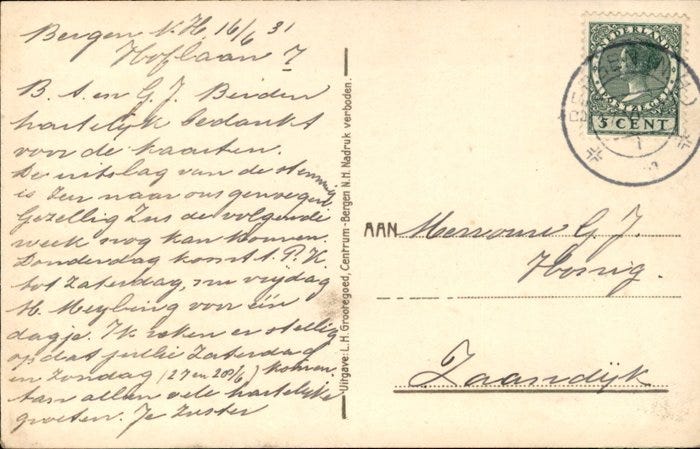 Bergen N.H. 16/6 31
Hoflaan 7
B. A. en G. J. Beiden
hartelijk bedankt
voor de kaarten.
De uitslag van de stemming
is zeer naar ons genoegen.
Gezellig Zus de volgende
week nog kan komen.
Donderdag komt t. P. K
tot Zaterdag, nu vrijdag
M. Meybring voor één
dagje. Ik reken er stellig
op dat jullie Zaterdag
en Zondag (27 en 28/6) komen.
Aan allen vele hartelijke
groeten. Je Zuster
Uitgave: L.H. Grootegoed, Centrum - Bergen N.H. Nadruk verboden.
NEDERLAND
POSTZEGEL
5 CENT
BERGEN (N.H.)
AAN Mevrouw G. J.
Honig.
Zaandijk